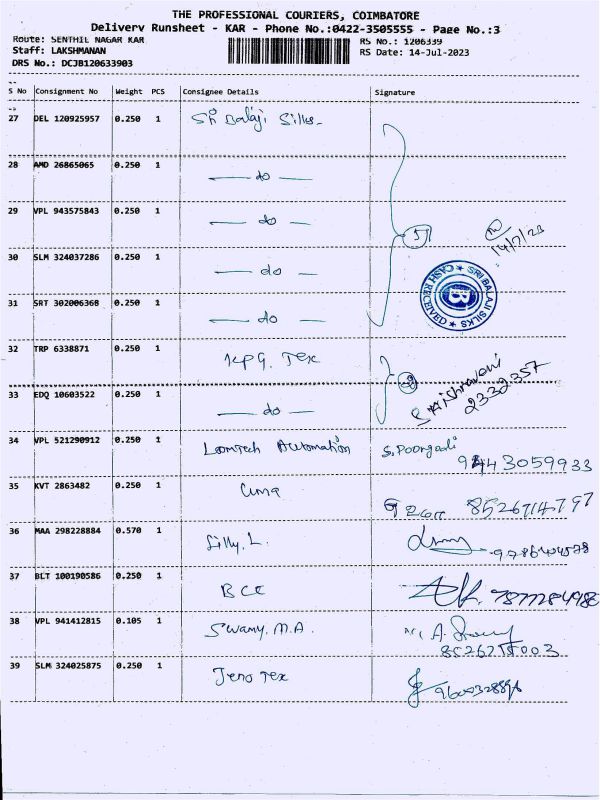 THE PROFESSIONAL COURIERS, COIMBATORE
Delivery Runsheet - KAR - Phone No.:0422-3505555 - Page No.:3
Route: SENTHIL NAGAR KAR RS No.: 1206339
Staff: LAKSHMANAN RS Date: 14-Jul-2023
DRS No.: DCJB120633903
S No Consignment No Weight PCS Consignee Details Signature
27 DEL 120925957 0.250 1 Sri Balaji Silks
28 AMD 26865065 0.250 1 — do —
29 VPL 943575843 0.250 1 — do —
14/7/23
30 SLM 324037286 0.250 1 — do —
SRI BALAJI SILKS
CASH RECEIVED
B
31 SRT 302006368 0.250 1 — do —
32 TRP 6338871 0.250 1 KPG. Tex
33 EDQ 10603522 0.250 1 — do —
2332357
34 VPL 521290912 0.250 1 Loomtech Automation S. Poongodi
9443059933
35 KVT 2863482 0.250 1 Cuma 8526714797
36 MAA 298228884 0.570 1 Silly. L.
37 BLT 100190586 0.250 1 BCC
38 VPL 941412815 0.105 1 Swamy. M.A.
39 SLM 324025875 0.250 1 Jeno Tex